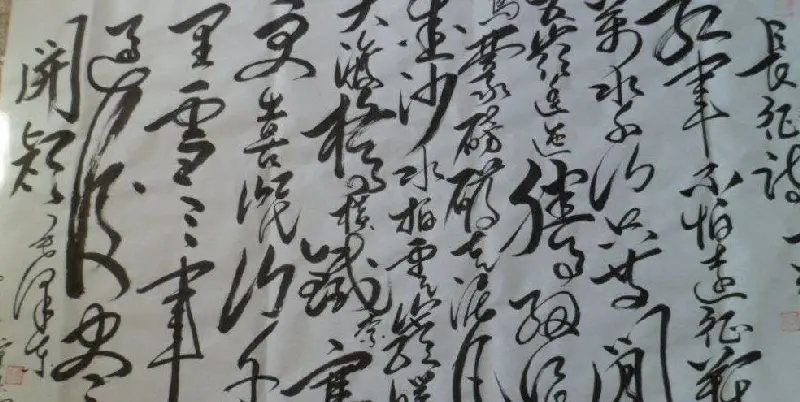 長征詩一
紅軍不怕遠征難
萬水千山只等閒
五嶺逶迤騰細浪
烏蒙磅礴走泥丸
金沙水拍雲崖暖
大渡橋橫鐵索寒
更喜岷山千
里雪三軍
過後尽
開顏 毛澤東